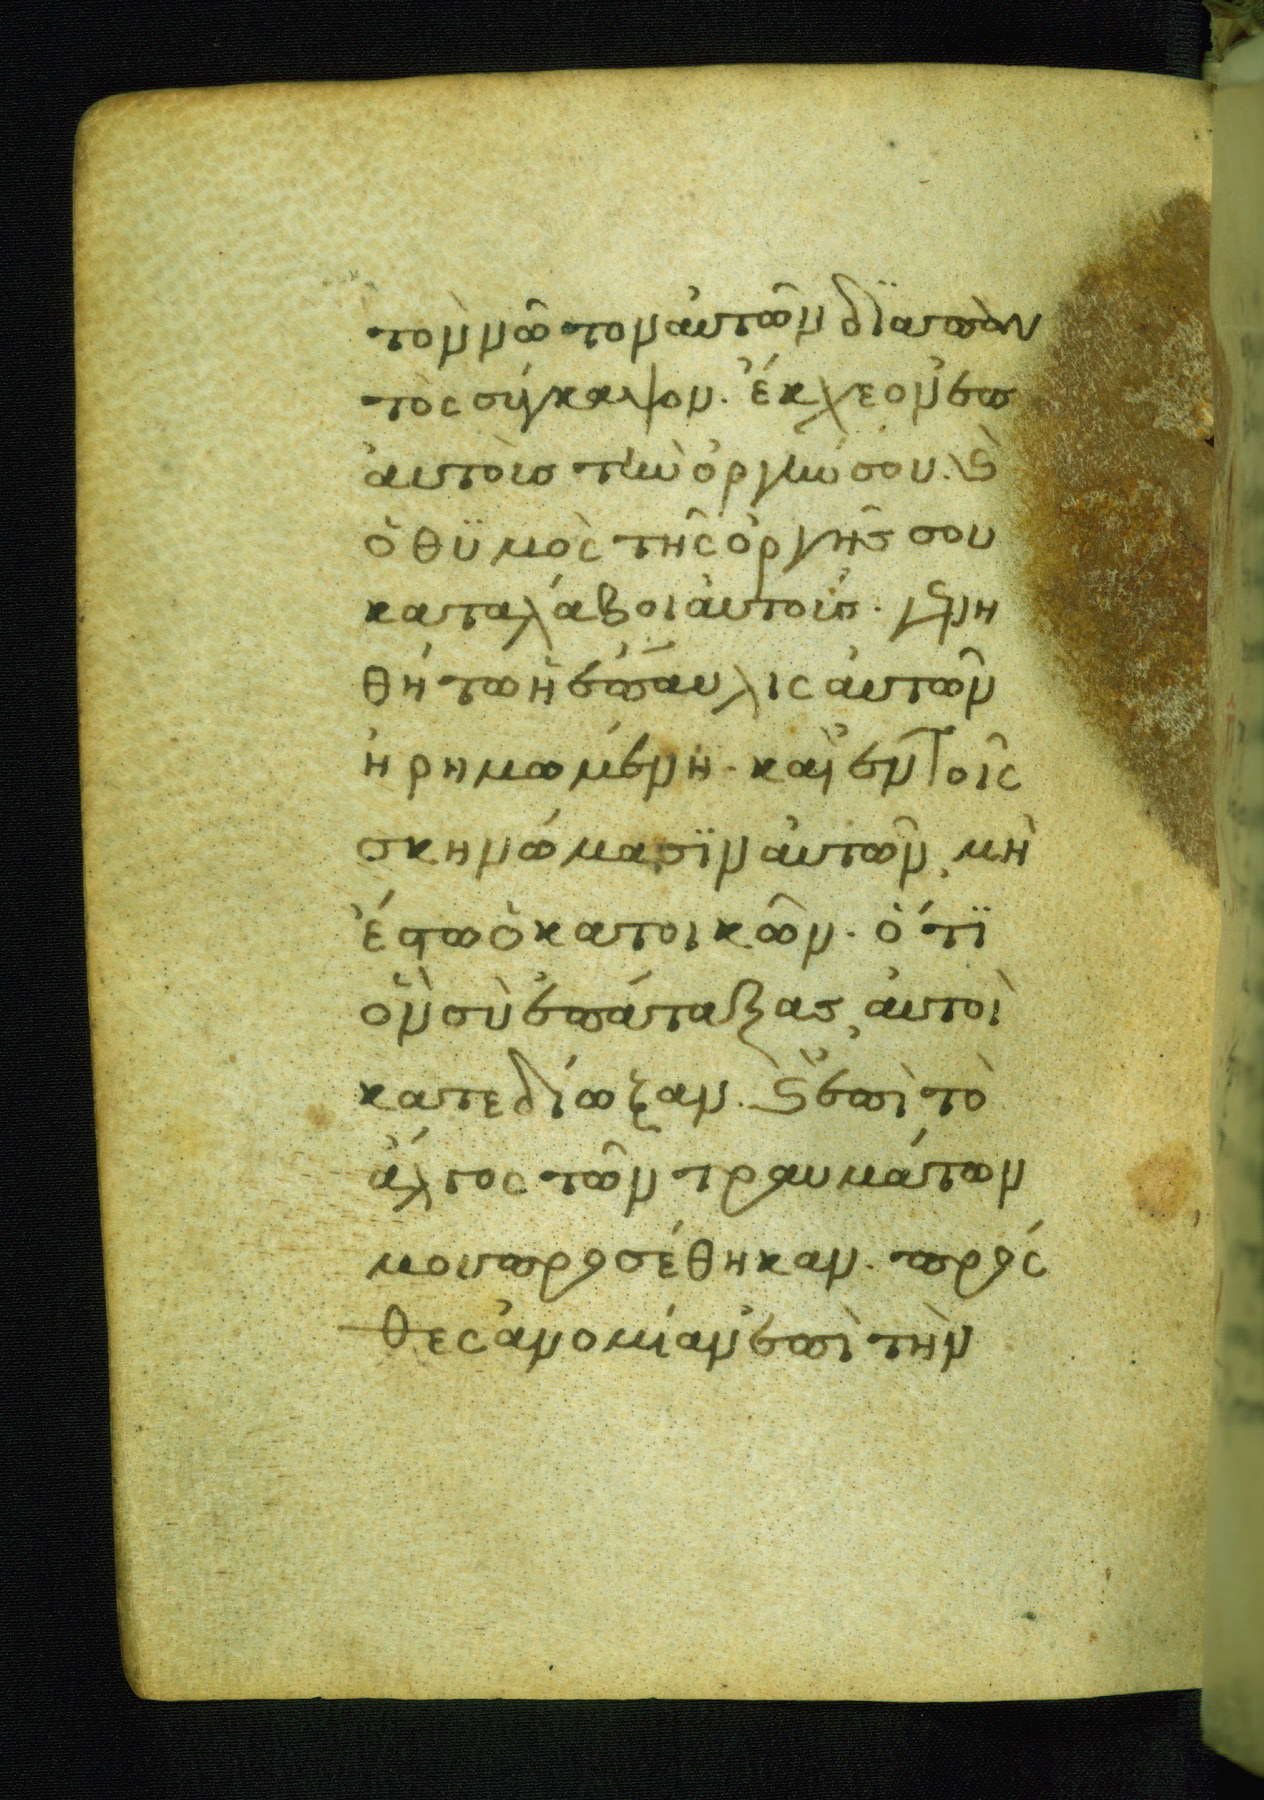 τὸν νῶτον αὐτῶν δϊαπὰν
τὸς σύγκαμψον. ἔκχεον ἐπ
ἀυτοὺσ τὴν ὀργήν σου. κ(αὶ)
ὁ θϋμὸς τῆς ὀργῆς σου
καταλάβοι ἀυτούσ. γενη
θήτω ἡ ἔπαυλις ἀυτῶν
ἠρημωμένη. καὶ ἐν τοῖς
σκηνώμασϊν ἀυτῶν, μὴ
ἔστω ὁ κατοικῶν. ὅτϊ
ὃν σὺ ἐπάταξας, ἀυτοὶ
κατεδίωξαν. κ(αὶ) ἐπὶ τὸ
ἄλγος τῶν τραυμάτων
μου προσέθηκαν. πρόσ
θες ἀνομίαν ἐπὶ τὴν